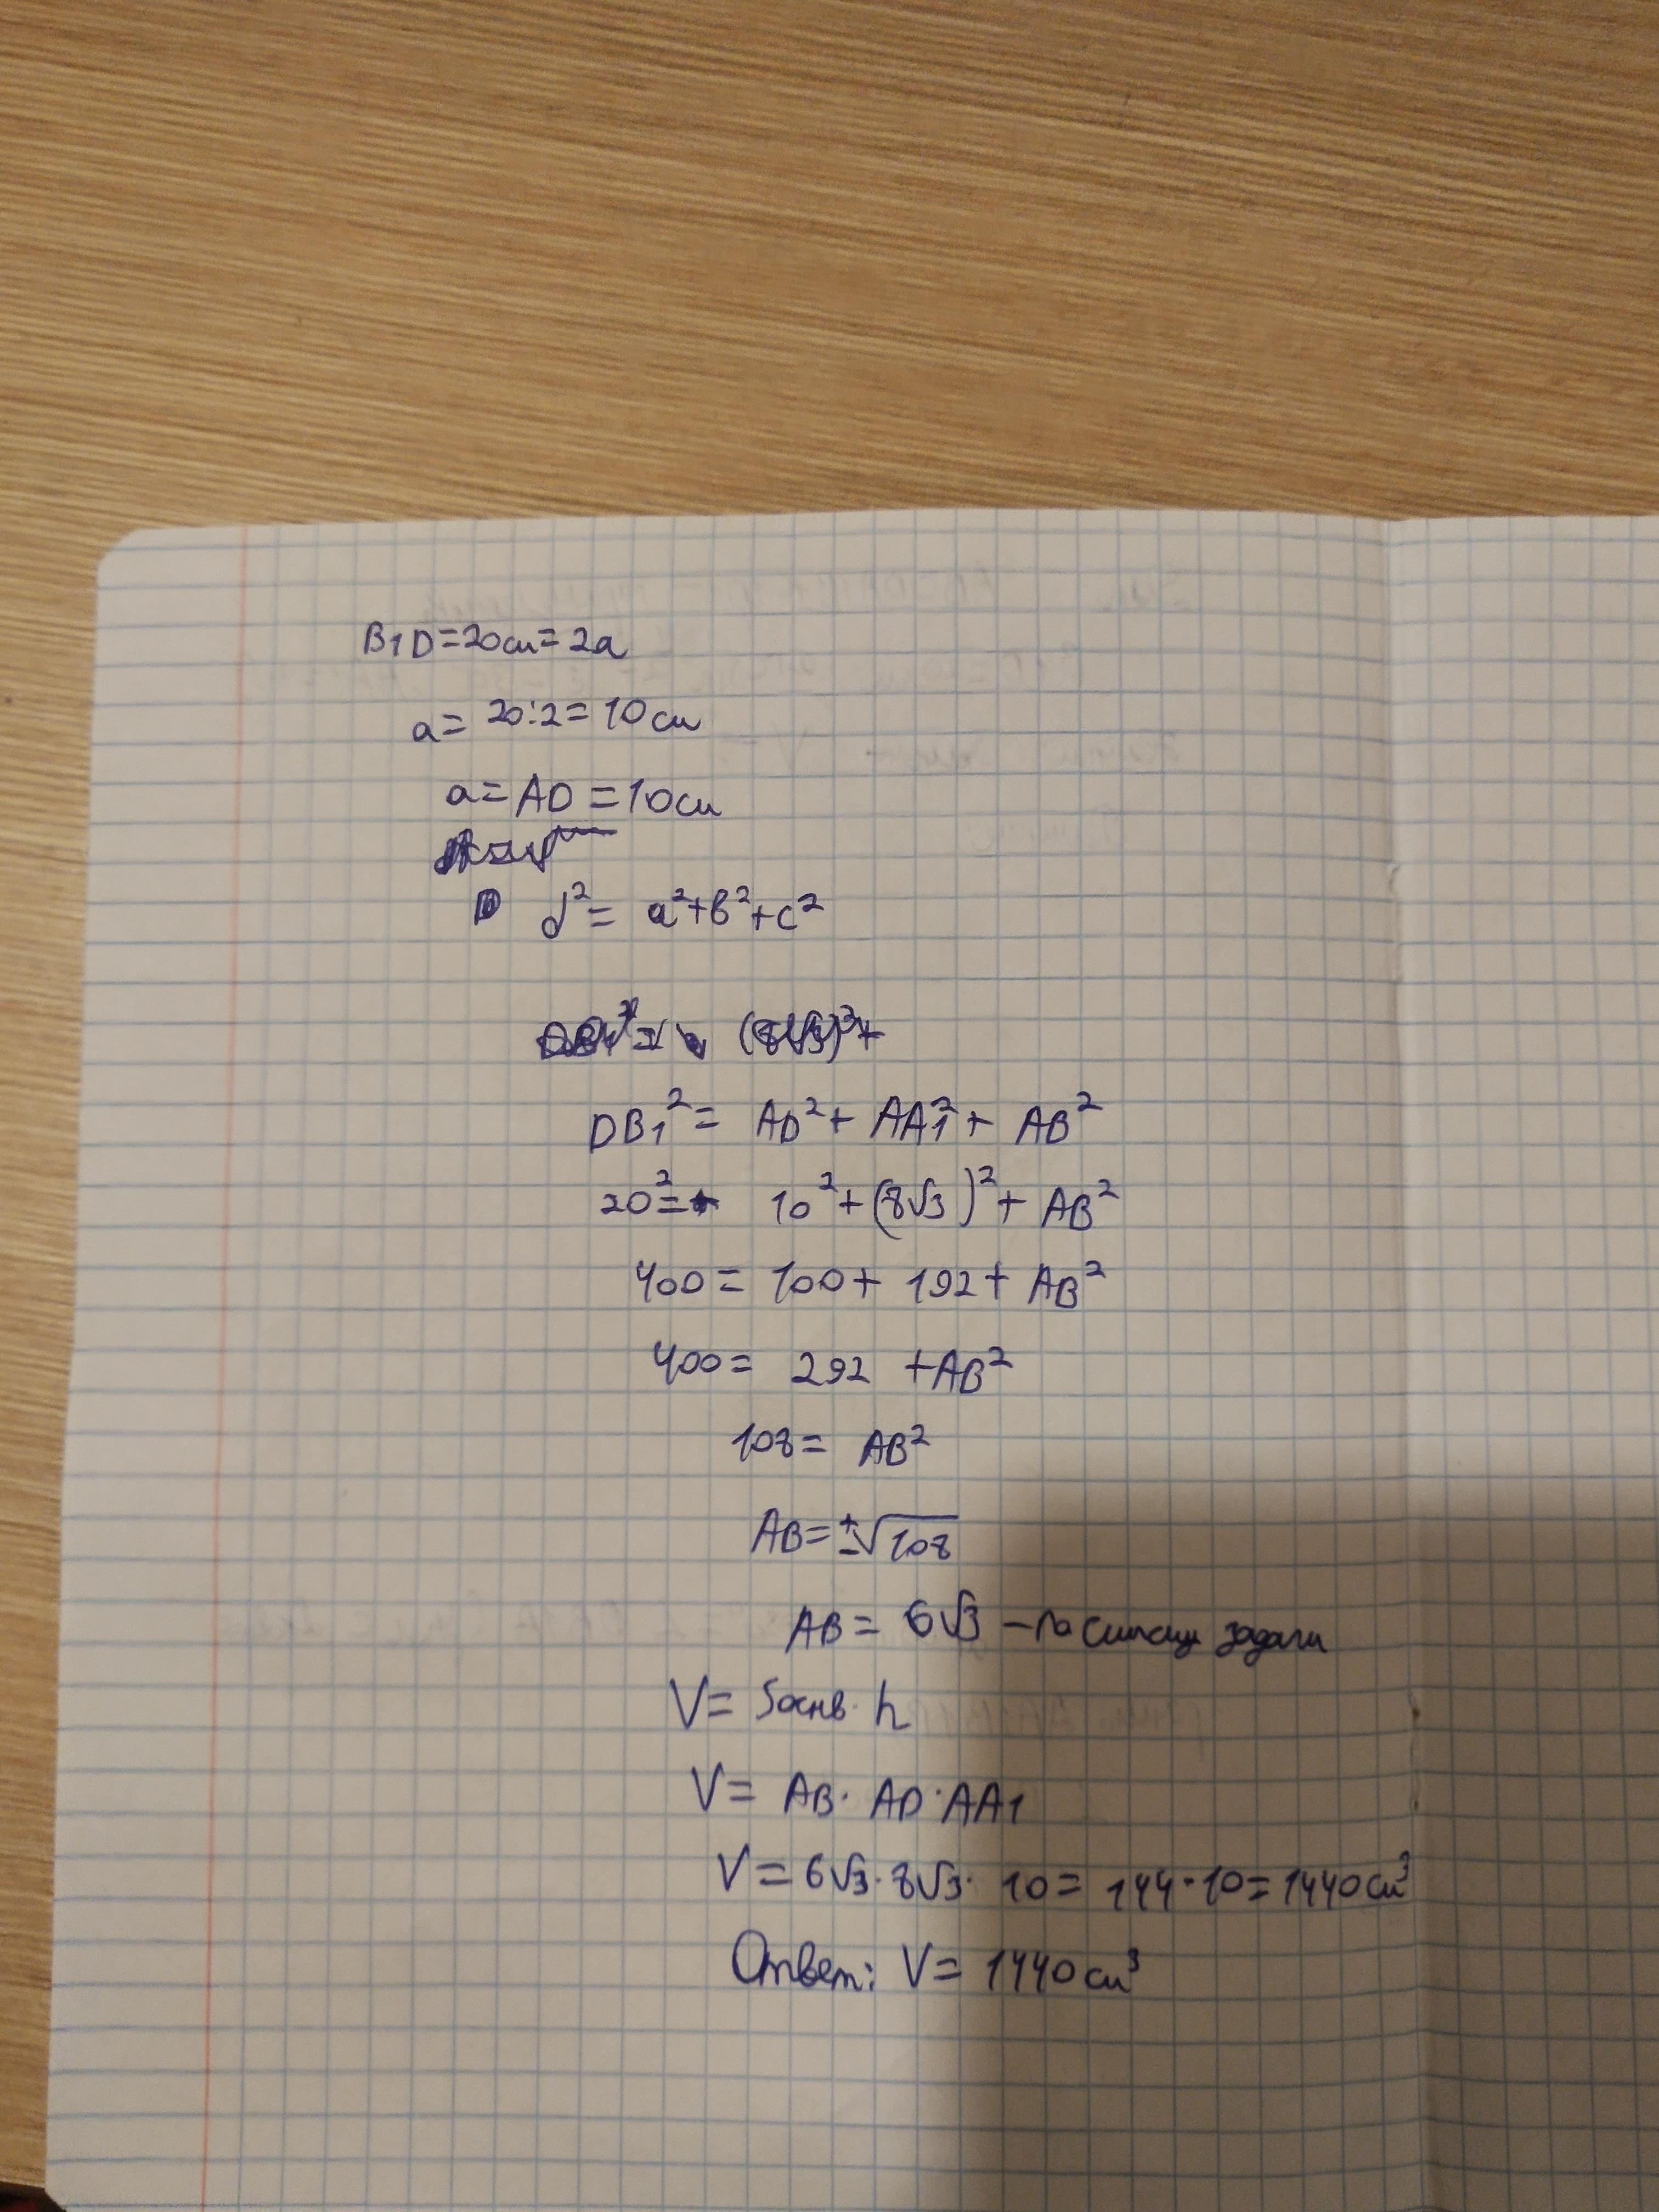 B1D=20см=2a
a= 20:2=10см
a=AD=10см
d²= a²+b²+c²
DB1²= AD²+ AA1²+ AB²
20²= 10²+(8√3)²+ AB²
400= 100+ 192+ AB²
400= 292 +AB²
108= AB²
AB=±√108
AB= 6√3 – по смыслу задачи
V= Sоснв· h
V= AB· AD·AA1
V=6√3·8√3· 10= 144·10=1440см³
Ответ: V= 1440см³